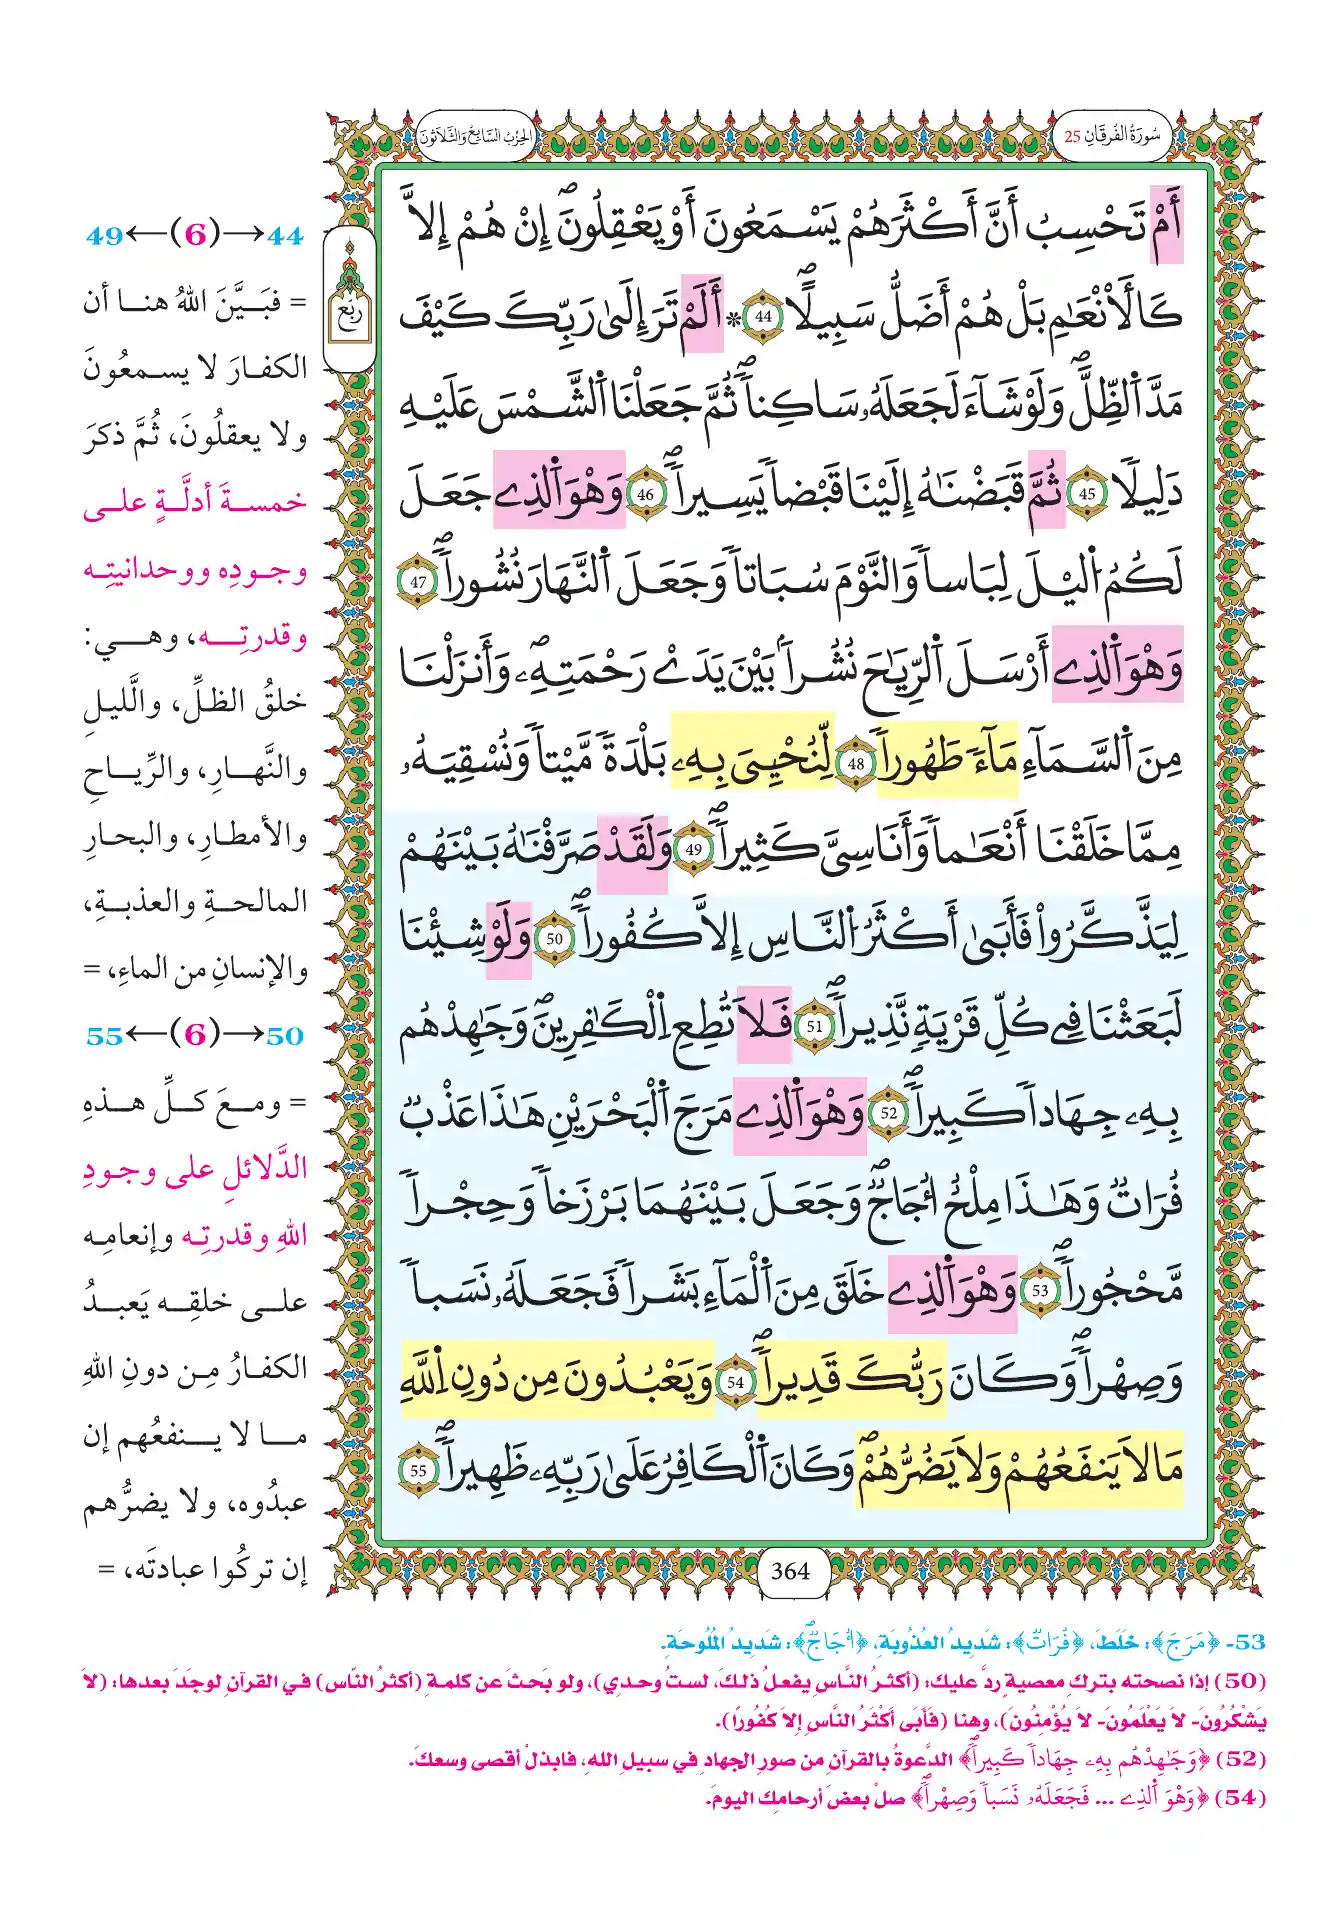 سُورَةُ الفُرْقَانِ 25
الحِزْبُ السَّابِعُ وَالثَّلَاثُونَ
أَمْ تَحْسِبُ أَنَّ أَكْثَرَهُمْ يَسْمَعُونَ أَوْ يَعْقِلُونَ إِنْ هُمْ إِلاَّ
كَالَانْعَٰمِ بَلْ هُمْ أَضَلُّ سَبِيلًا 44 * أَلَمْ تَرَ إِلَىٰ رَبِّكَ كَيْفَ
مَدَّ ٱلظِّلَّ وَلَوْ شَآءَ لَجَعَلَهُۥ سَاكِناً ثُمَّ جَعَلْنَا ٱلشَّمْسَ عَلَيْهِ
دَلِيلًا 45 ثُمَّ قَبَضْنَٰهُ إِلَيْنَا قَبْضاً يَسِيراً 46 وَهْوَ ٱلذِے جَعَلَ
لَكُمُ ٱليْلَ لِبَاساً وَالنَّوْمَ سُبَاتاً وَجَعَلَ ٱلنَّهَارَ نُشُوراً 47
وَهْوَ ٱلذِے أَرْسَلَ ٱلرِّيَٰحَ نُشُراً بَيْنَ يَدَےْ رَحْمَتِهِۦ وَأَنزَلْنَا
مِنَ ٱلسَّمَآءِ مَآءً طَهُوراً 48 لِّنُحْـِۧىَ بِهِۦ بَلْدَةً مَّيْتاً وَنُسْقِيَهُۥ
مِمَّا خَلَقْنَا أَنْعَٰماً وَأَنَاسِىَّ كَثِيراً 49 وَلَقَدْ صَرَّفْنَٰهُ بَيْنَهُمْ
لِيَذَّكَّرُواْ فَأَبَىٰ أَكْثَرُ ٱلنَّاسِ إِلاَّ كُفُوراً 50 وَلَوْ شِئْنَا
لَبَعَثْنَا فِے كُلِّ قَرْيَةٍ نَّذِيراً 51 فَلاَ تُطِعِ اِلْكَٰفِرِينَ وَجَٰهِدْهُم
بِهِۦ جِهَاداً كَبِيراً 52 وَهْوَ ٱلذِے مَرَجَ ٱلْبَحْرَيْنِ هَٰذَا عَذْبٌ
فُرَاتٌ وَهَٰذَا مِلْحٌ اُجَاجٌ وَجَعَلَ بَيْنَهُمَا بَرْزَخاً وَحِجْراً
مَّحْجُوراً 53 وَهْوَ ٱلذِے خَلَقَ مِنَ ٱلْمَآءِ بَشَراً فَجَعَلَهُۥ نَسَباً
وَصِهْراً وَكَانَ رَبُّكَ قَدِيراً 54 وَيَعْبُدُونَ مِن دُونِ اِللَّهِ
مَا لاَ يَنفَعُهُمْ وَلاَ يَضُرُّهُمْ وَكَانَ ٱلْكَافِرُ عَلَىٰ رَبِّهِۦ ظَهِيراً 55
ربع
44→(6)←49
= فبَيَّنَ اللهُ هنا أن
الكفارَ لا يسمعُونَ
ولا يعقلُونَ، ثُمَّ ذكرَ
خمسةَ أدلَّةٍ على
وجودِه ووحدانيتِه
وقدرتِه، وهي:
خلقُ الظلِّ، واللَّيلِ
والنَّهارِ، والرِّياحِ
والأمطارِ، والبحارِ
المالحةِ والعذبةِ،
والإنسانِ من الماءِ، =
50→(6)←55
= ومعَ كلِّ هذهِ
الدَّلائلِ على وجودِ
اللهِ وقدرتِه وإنعامِه
على خلقِه يَعبدُ
الكفارُ مِن دونِ اللهِ
ما لا ينفعُهم إن
عبدُوه، ولا يضرُّهم
إن تركُوا عبادتَه، =
364
53- ﴿مَرَجَ﴾: خَلَطَ، ﴿فُرَاتٌ﴾: شَدِيدُ العُذُوبَةِ، ﴿اُجَاجٌ﴾: شَدِيدُ المُلُوحَةِ.
(50) إذا نصحته بتركِ معصيةٍ ردَّ عليك: (أكثرُ النَّاسِ يفعلُ ذلكَ، لستُ وحدي)، ولو بَحثَ عن كلمةِ (أكثرُ النّاس) في القرآنِ لوجَدَ بعدها: (لَا
يَشْكُرُونَ- لَا يَعْلَمُونَ- لَا يُؤْمِنُونَ)، وهنا (فَأَبَى أَكْثَرُ النَّاسِ إِلَا كُفُورًا).
(52) ﴿وَجَٰهِدْهُم بِهِۦ جِهَاداً كَبِيراً﴾ الدَّعوةُ بالقرآنِ من صورِ الجهادِ في سبيلِ اللهِ، فابذلْ أقصى وسعكَ.
(54) ﴿وَهْوَ ٱلذِے ... فَجَعَلَهُۥ نَسَباً وَصِهْراً﴾ صلْ بعضَ أرحامِك اليومَ.